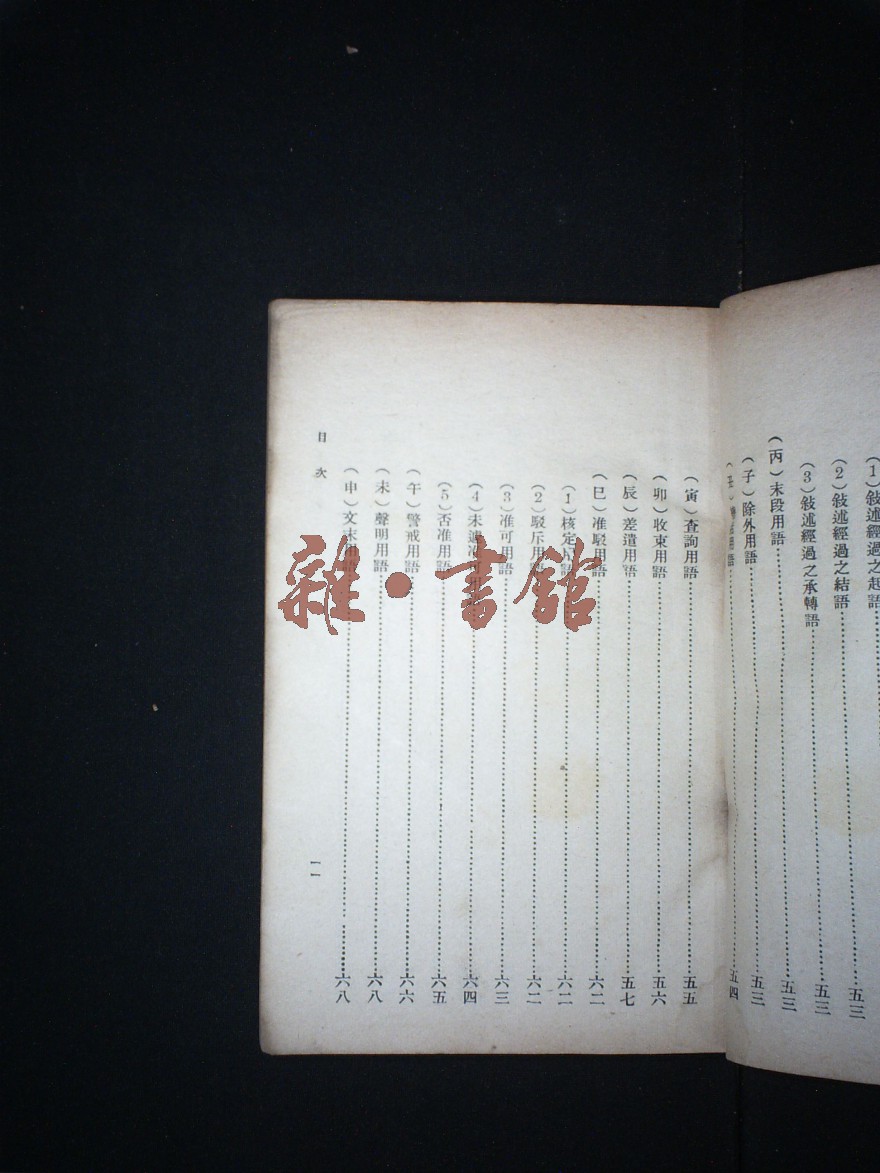 (1)敍述經過之起語
(2)敍述經過之結語……五三
(3)敍述經過之承轉語……五三
(丙)末段用語……五三
(子)除外用語……五三
用語……五四
(寅)查詢用語……五五
(卯)收束用語……五六
(辰)差遣用語……五七
(巳)准駁用語……六二
(1)核定用語……六二
(2)駁斥用語……六二
(3)准可用語……六三
(4)未……六四
(5)否准用語……六五
(午)警戒用語……六六
(未)聲明用語……六八
(申)文末用語……六八
目次
一一
雜·書館